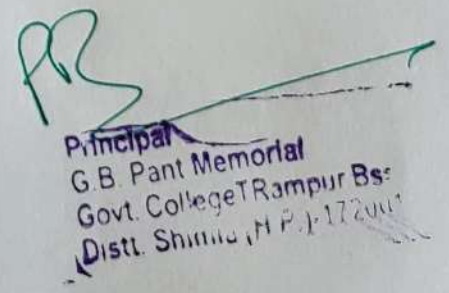 Principal
G.B. Pant Memorial
Govt. College Rampur Bs
Distt. Shimla (H.P.)-172001